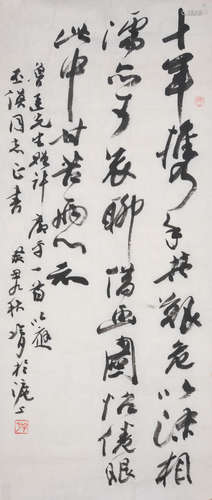 十年攜手共艱危以沫相
濡亦可哀聊借畫圖怡倦眼
此中甘苦兩心知
魯迅先生贈許廣平一首以應
同志正書
秋
於滬上